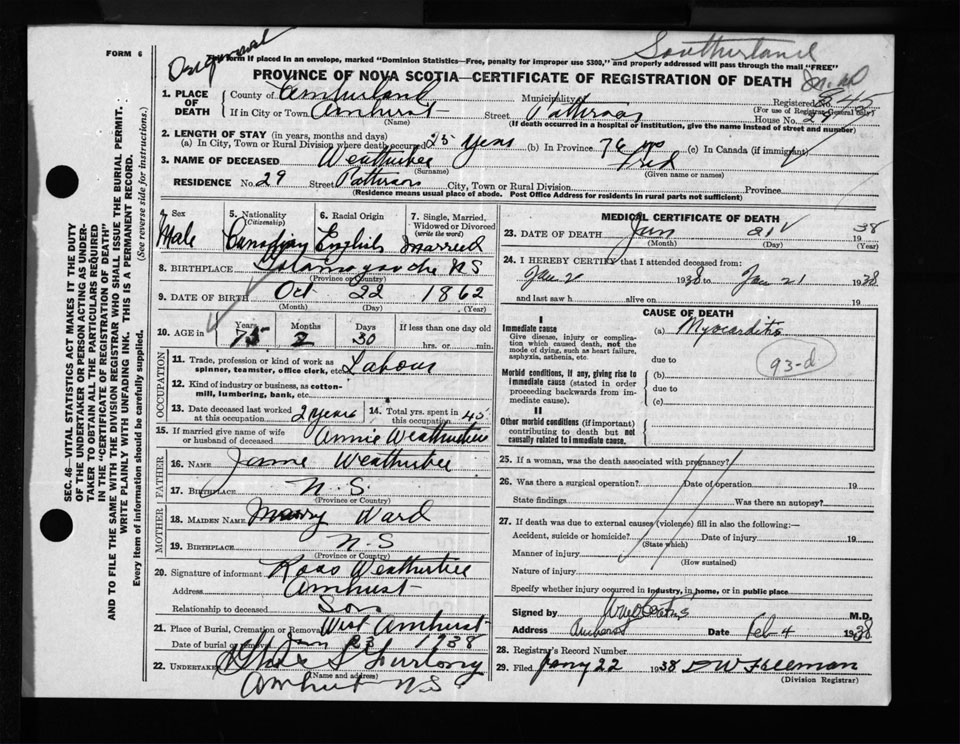 FORM 6
Southerland
Form if placed in an envelope, marked "Dominion Statistics—Free, penalty for improper use $300," and properly addressed will pass through the mail "FREE"
PROVINCE OF NOVA SCOTIA—CERTIFICATE OF REGISTRATION OF DEATH
1. PLACE OF DEATH
County of Cumberland Municipality
Registered No.
(For use of Registrar General only)
If in City or Town Amherst Street Patterson House No. 29
(Name)
(If death occurred in a hospital or institution, give the name instead of street and number)
2. LENGTH OF STAY (in years, months and days)
(a) In City, Town or Rural Division where death occurred 25 years (b) In Province 76 (c) In Canada (if immigrant)
3. NAME OF DECEASED Weatherbee Fred
(Surname) (Given name or names)
RESIDENCE No. 29 Street Patterson City, Town or Rural Division Province
(Residence means usual place of abode. Post Office Address for residents in rural parts not sufficient)
Sex Male
5. Nationality (Citizenship) Canadian
6. Racial Origin English
7. Single, Married, Widowed or Divorced (write the word) Married
8. BIRTHPLACE N S
(Province or Country)
9. DATE OF BIRTH Oct 22 1862
(Month) (Day) (Year)
10. AGE in Years 75 Months 2 Days 30 If less than one day old
hrs. or min.
OCCUPATION
11. Trade, profession or kind of work as spinner, teamster, office clerk, etc. Labour
12. Kind of industry or business, as cotton-mill, lumbering, bank, etc.
13. Date deceased last worked at this occupation 2 years 14. Total yrs. spent in this occupation 45
15. If married give name of wife or husband of deceased Annie Weatherbee
FATHER
16. NAME Weatherbee
17. BIRTHPLACE N.S.
(Province or Country)
MOTHER
18. MAIDEN NAME Mary Ward
19. BIRTHPLACE N.S
(Province or Country)
20. Signature of informant Ross Weatherbee
Address Amherst
Relationship to deceased Son
21. Place of Burial, Cremation or Removal West Amherst
Date of burial or removal Jan 23 1938
22. UNDERTAKER Furlong
(Name and address)
Amherst N S
MEDICAL CERTIFICATE OF DEATH
23. DATE OF DEATH Jan 21 1938
(Month) (Day) (Year)
24. I HEREBY CERTIFY that I attended deceased from:
Jan 2 1938 to Jan 21 1938
and last saw h alive on 19
CAUSE OF DEATH
I
Immediate cause
Give disease, injury or complication which caused death, not the mode of dying, such as heart failure, asphyxia, asthenia, etc.
(a) Myocarditis
93-d
due to
Morbid conditions, if any, giving rise to immediate cause (stated in order proceeding backwards from immediate cause).
(b)
due to
(c)
II
Other morbid conditions (if important) contributing to death but not causally related to immediate cause.
25. If a woman, was the death associated with pregnancy?
26. Was there a surgical operation? Date of operation 19
State findings Was there an autopsy?
27. If death was due to external causes (violence) fill in also the following:—
Accident, suicide or homicide? Date of injury 19
(State which)
Manner of injury
(How sustained)
Nature of injury
Specify whether injury occurred in industry, in home, or in public place
Signed by M.D.
Address Amherst Date Feb 4 1938
28. Registrar's Record Number
29. Filed Jany 22 1938 D W Freeman
(Division Registrar)
SEC. 46—VITAL STATISTICS ACT MAKES IT THE DUTY
OF THE UNDERTAKER OR PERSON ACTING AS UNDER-
TAKER TO OBTAIN ALL THE PARTICULARS REQUIRED
IN THE "CERTIFICATE OF REGISTRATION OF DEATH"
AND TO FILE THE SAME WITH THE DIVISION REGISTRAR WHO SHALL ISSUE THE BURIAL PERMIT.
WRITE PLAINLY WITH UNFADING INK. THIS IS A PERMANENT RECORD.
Every item of information should be carefully supplied. (See reverse side for instructions.)